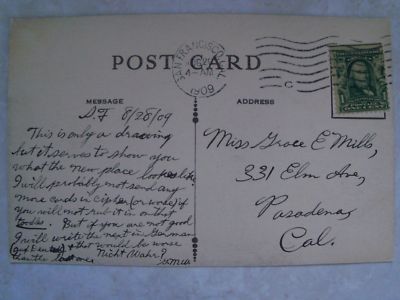 POST CARD
SAN FRANCISCO, CAL.
4-AM
1909
C
MESSAGE
ADDRESS
S.F 8/28/09
This is only a drawing
but it serves to show you
what the new place looks like.
I will probably not send any
more cards in cipher (or worse) if
you will not rub it in on that
But if you are not good
I will write the next in German
that would be worse
than the last one. Nicht Wahr?
Miss Grace E Mills,
331 Elm Ave,
Pasadena,
Cal.